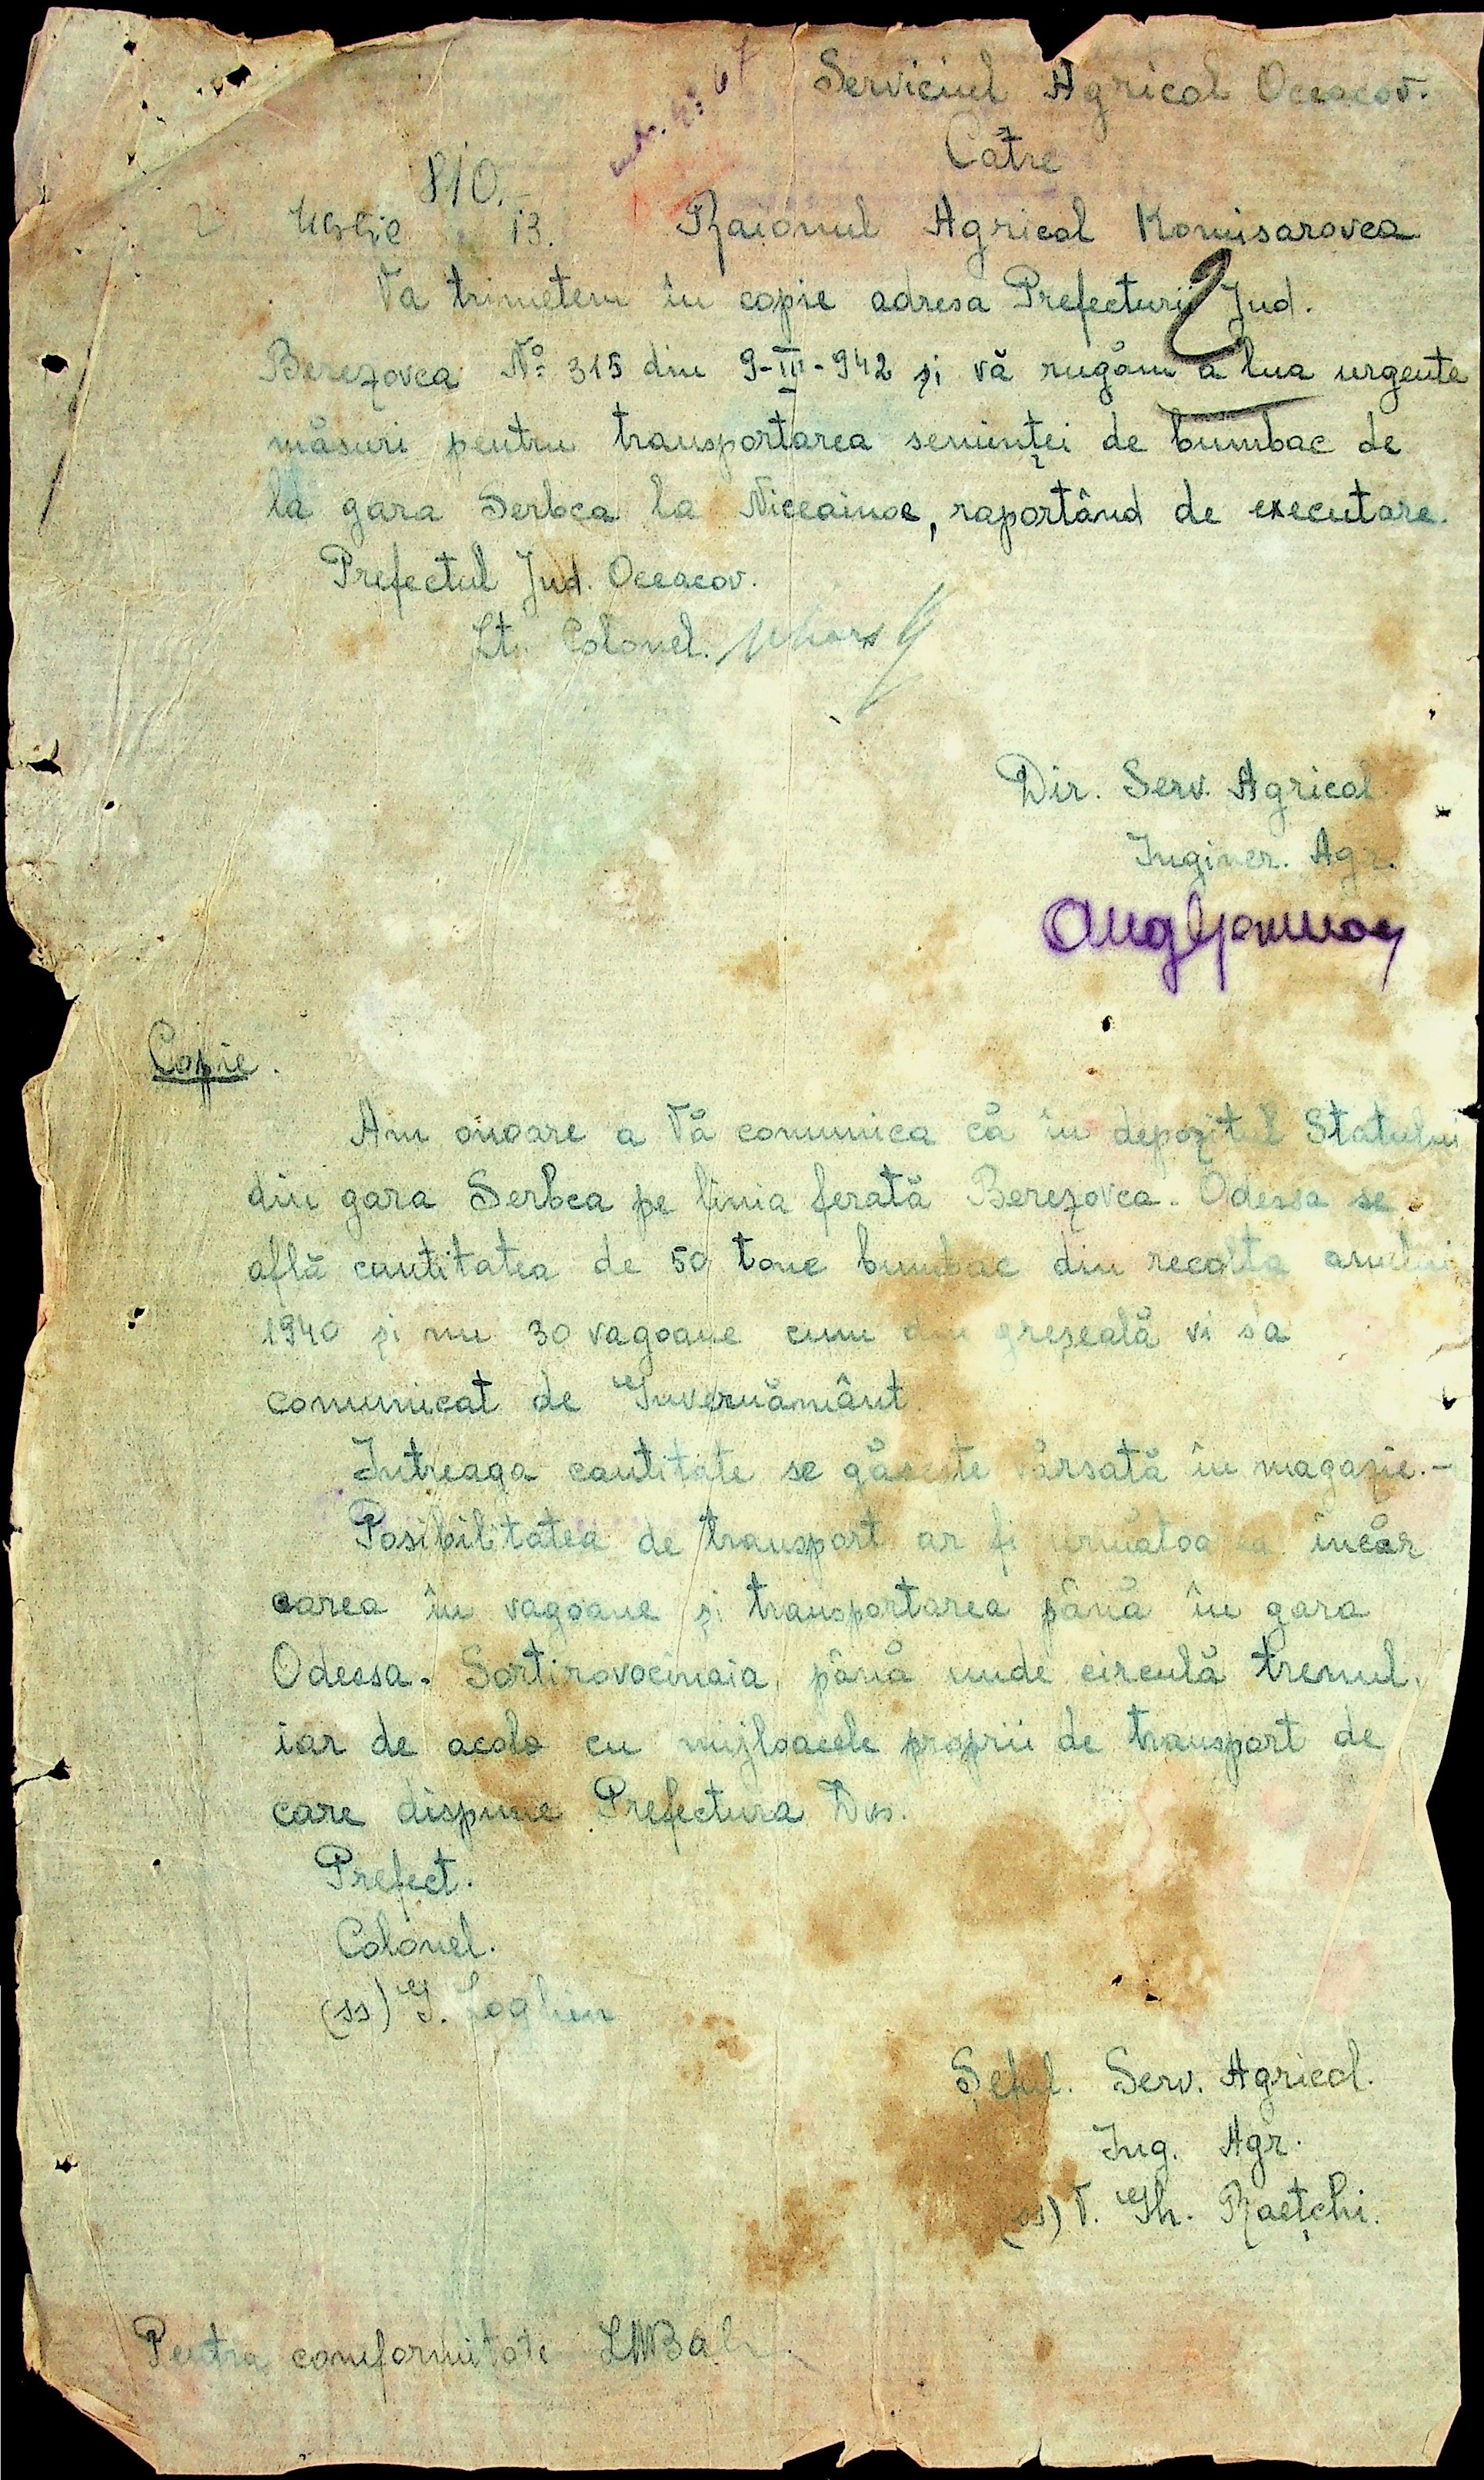 Serviciul Agricol Oceacov.
Către
810.-
13. Raionul Agricol Komisarovca
Va trimetem în copie adresa Prefecturii Jud.
2
Berezovca No 315 din 9-III-942 și vă rugăm a lua urgente
măsuri pentru transportarea seminței de bumbac de
la gara Serbca la Niceainoe, raportând de executare.
Prefectul Jud. Oceacov.
Lt. Colonel.
Dir. Serv. Agricol.
Inginer. Agr.
Copie.
Am onoare a Vă comunica că în depozitul Statului
din gara Serbca pe linia ferată Berezovca. Odessa se
află cantitatea de 50 tone bumbac din recolta anului
1940 și nu 30 vagoane cum din greșeală vi s'a
comunicat de Guvernământ.
Intreaga cantitate se găsește vărsată în magazie.-
Posibilitatea de transport ar fi următoarea încăr
carea în vagoane și transportarea până în gara
Odessa. Sortirovocinaia, până unde circulă trenul,
iar de acolo cu mijloacele proprii de transport de
care dispune Prefectura Dvs.
Prefect.
Colonel.
(ss) G. Loghin
Șeful. Serv. Agricol.
Ing. Agr.
(ss) V. Gh. Raețchi.
Pentru conformitate